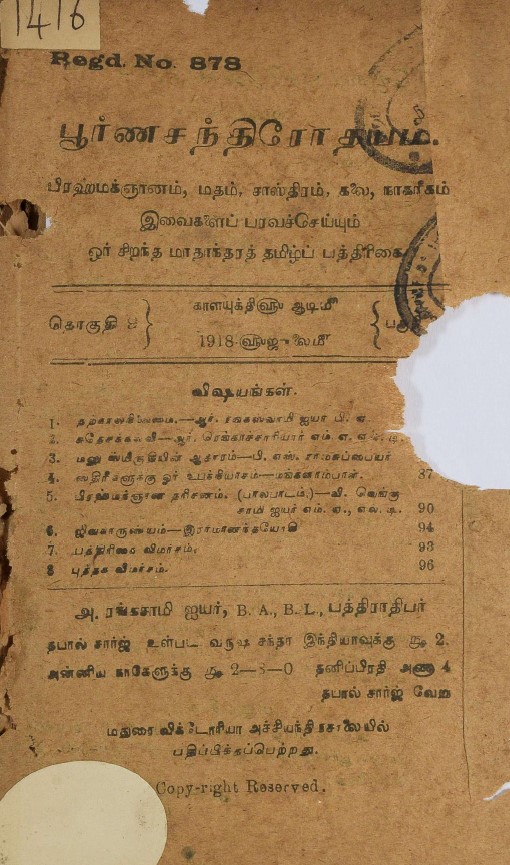 1416
Regd. No. 878
பூர்ணசந்திரோதயம்.
பிரஹ்மக்ஞானம், மதம், சாஸ்திரம், கலை, நாகரிகம்
இவைகளைப் பரவச்செய்யும்
ஓர் சிறந்த மாதாந்தரத் தமிழ்ப் பத்திரிகை
தொகுதி
காளயுக்தி௵ ஆடி௴
1918-௵ ஜுலை௴
விஷயங்கள்.
1. தற்காலநிலைமை.—ஆர். ரங்கஸ்வாமி ஐயர் பி. ஏ
2. சுதேசக்கல்வி—ஆர். ரெங்காச்சாரியார் எம். ஏ. எல். டி.
3. மனு ஸ்மிருதியின் ஆதாரம்—பி. எஸ். ராமசுப்பையர்
4. ஸ்திரீகளுக்கு ஓர் உபந்நியாசம்—மங்களாம்பாள். 87
5. பிரஹ்மக்ஞான தரிசனம். (பாலபாடம்.)—வி. வெங்கு
சாமி ஐயர் எம். ஏ., எல். டி. 90
6. ஜீவகாருண்யம்—இராமாநந்தயோகி 94
7. பத்திரிகை விமர்சம். 93
8 புத்தக விமர்சம். 96
அ. ரங்கசாமி ஐயர், B. A., B. L., பத்திராதிபர்
தபால் சார்ஜ் உள்பட வருஷ சந்தா இந்தியாவுக்கு ரூ 2.
அன்னிய நாடுகளுக்கு ரூ 2—8—0 தனிப்பிரதி அணா 4
தபால் சார்ஜ் வேறு
மதுரை விக்டோரியா அச்சியந்திரசாலையில்
பதிப்பிக்கப்பெற்றது.
Copy-right Reserved.